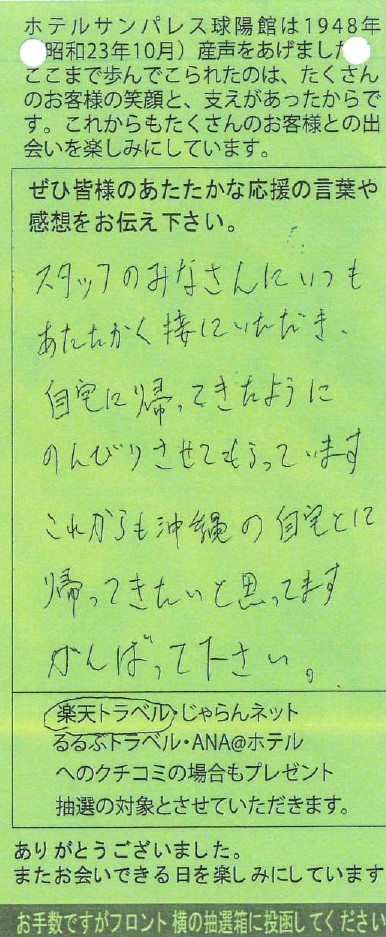 ホテルサンパレス球陽館は1948年
昭和23年10月）産声をあげまし
ここまで歩んでこられたのは、たくさん
のお客様の笑顔と、支えがあったからで
す。これからもたくさんのお客様との出
会いを楽しみにしています。
ぜひ皆様のあたたかな応援の言葉や
感想をお伝え下さい。
スタッフのみなさんにいつも
あたたかく接していただき、
自宅に帰ってきたように
のんびりさせてもらっています
これからも沖縄の自宅として
帰ってきたいと思ってます
がんばって下さい。
楽天トラベル・じゃらんネット
るるぶトラベル・ANA@ホテル
へのクチコミの場合もプレゼント
抽選の対象とさせていただきます。
ありがとうございました。
またお会いできる日を楽しみにしています
お手数ですがフロント横の抽選箱に投函してください